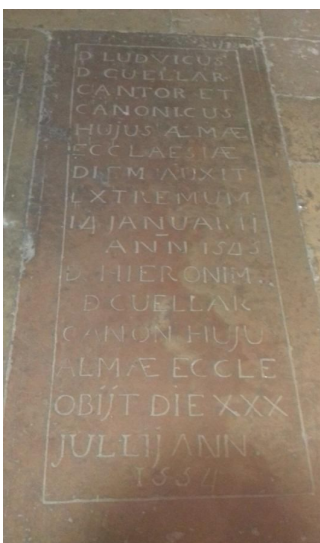 D LUDVICUS
D CUELLAR
CANTOR ET
CANONICUS
HUJUS ALMÆ
ECCLAESIÆ
DIEM AUXIT
EXTREMUM
14 JANUARII
ANN 1545
D HIERONIM
D CUELLAR
CANON HUJU
ALMÆ ECCLE
OBIJT DIE XXX
JULLIJ ANN
1554